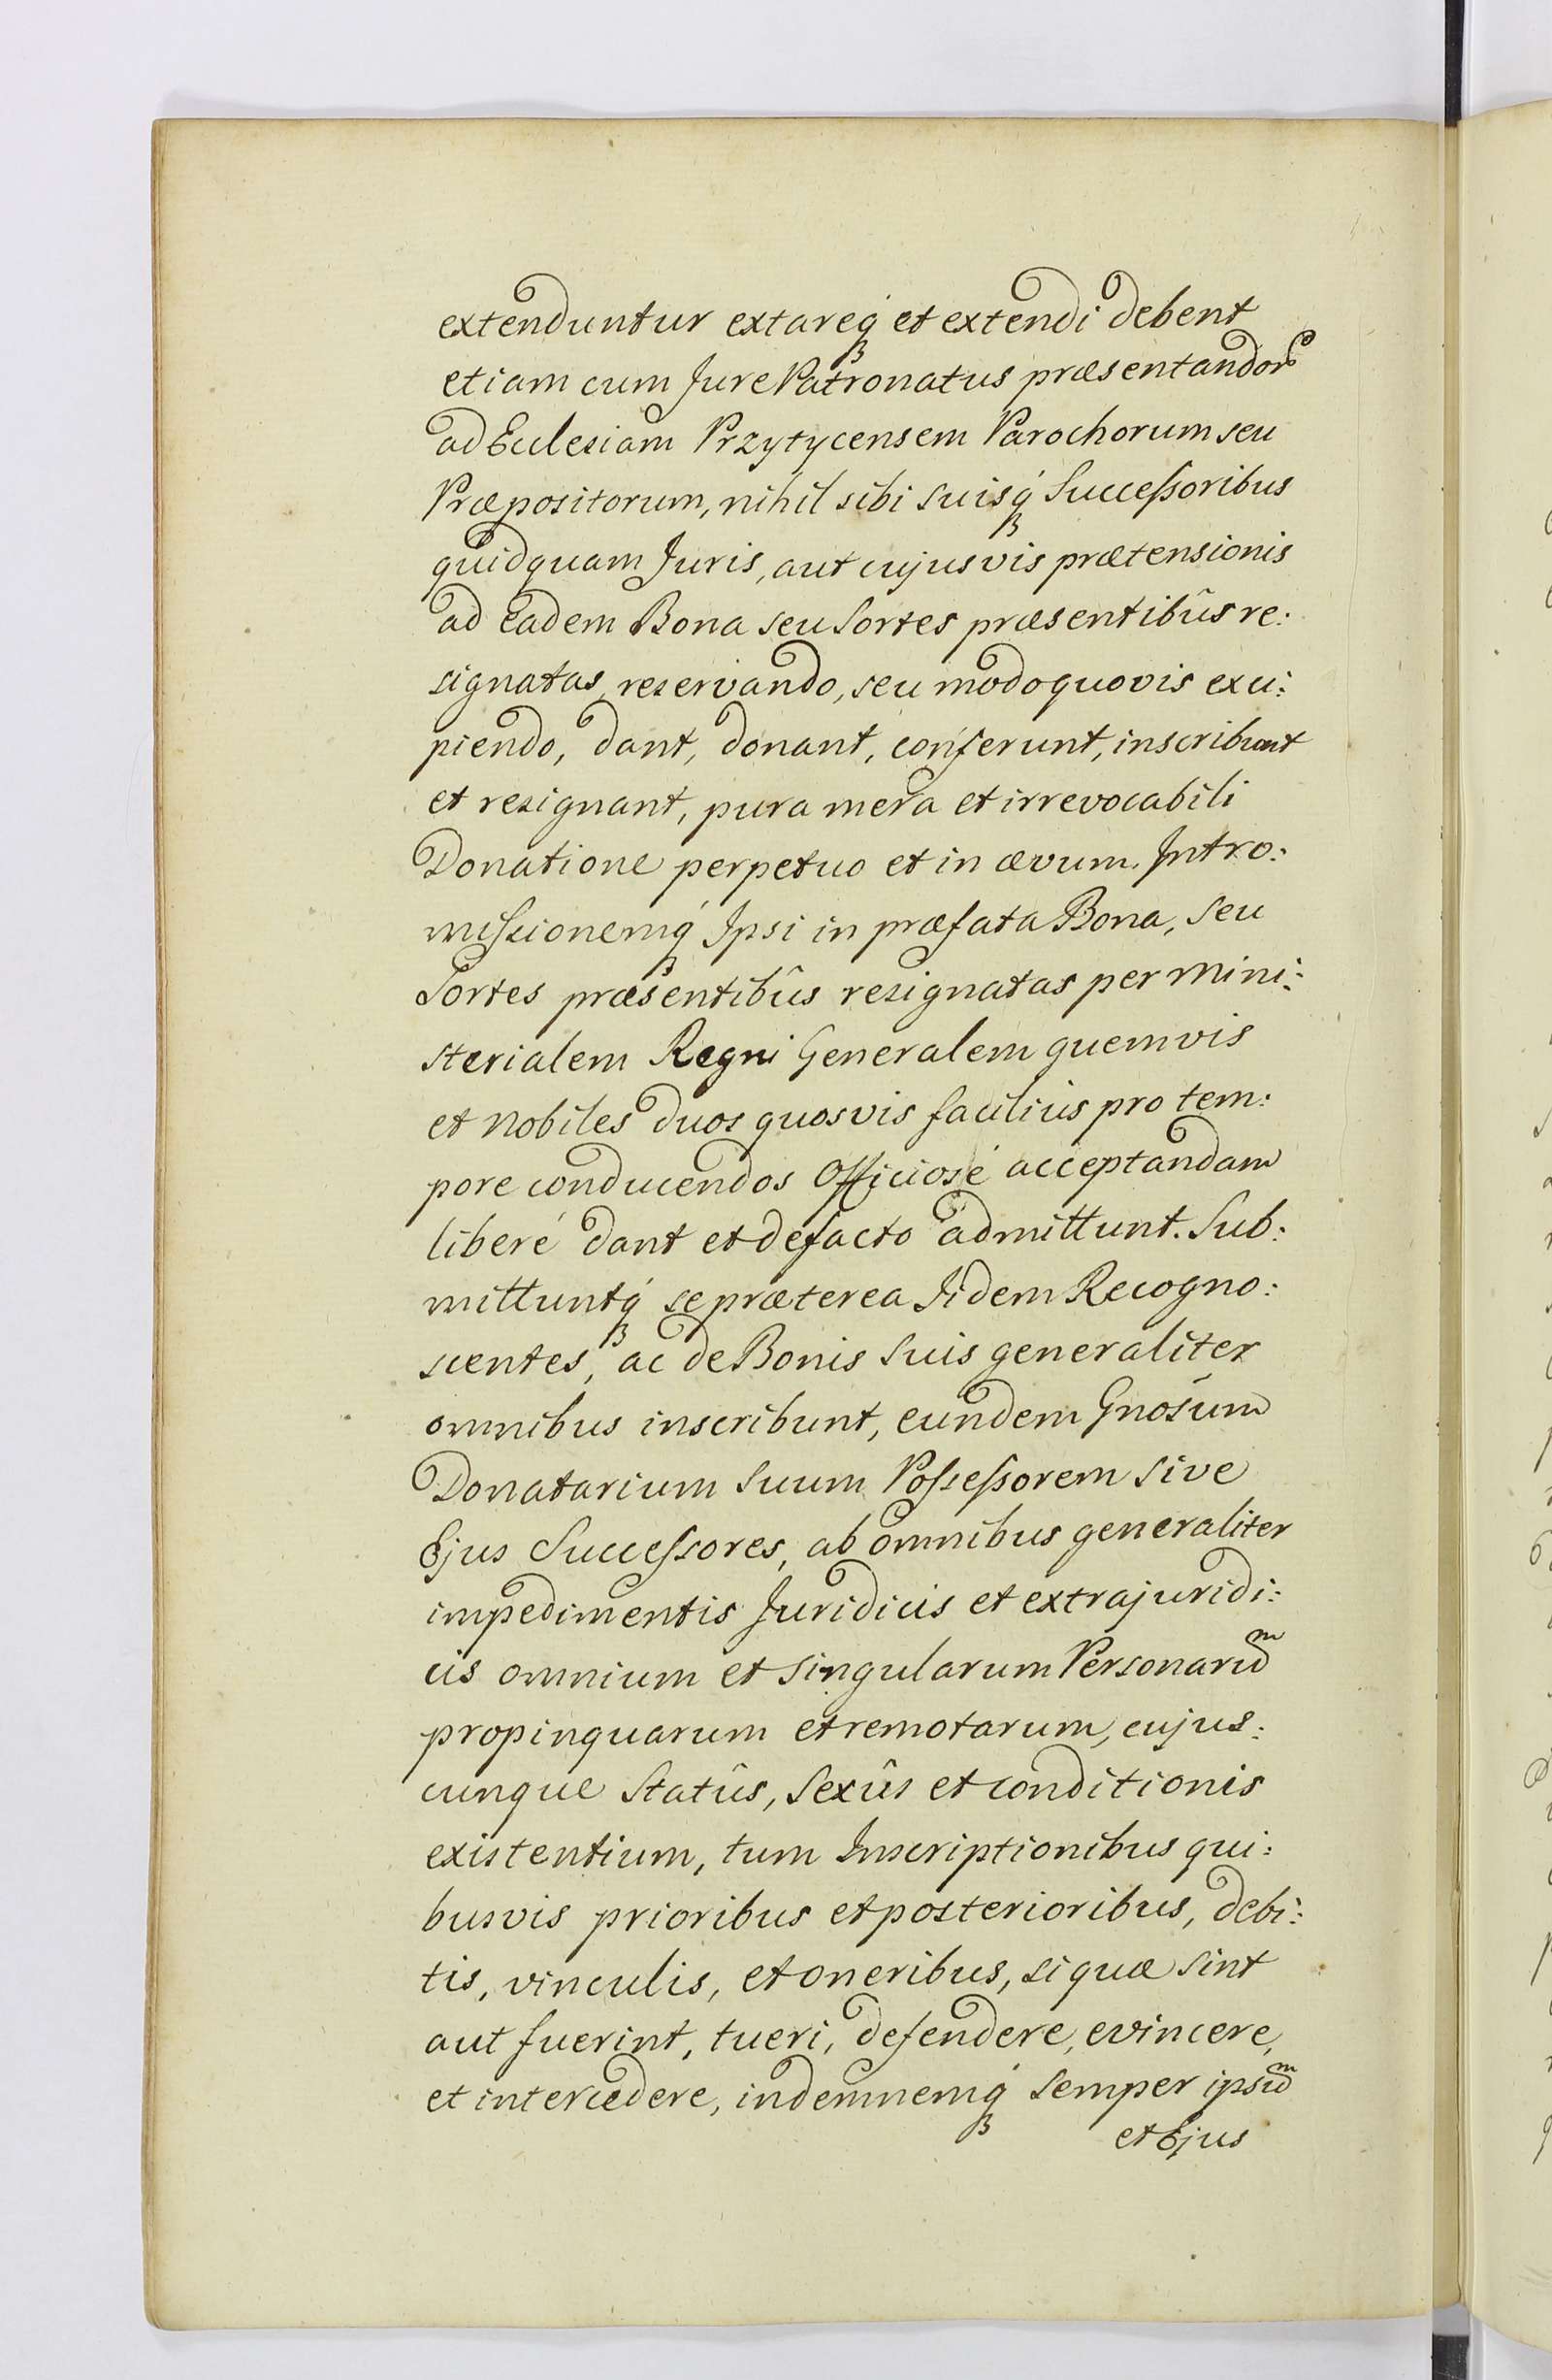 extenduntur extareq́ꝫ et extendi debent
etiam cum Jure Patronatus præsentandorꝫ
ad Ecclesiam Przytycensem Parochorum seu
Præpositorum, nihil sibi suisq́ꝫ Successoribus
quidquam Juris, aut cujusvis prætensionis
ad Eadem Bona seu Sortes præsentibûs re:
signatas, reservando, seu modoquovis exci:
piendo, dant, donant, conferunt, inscribunt
et resignant, pura mera et irrevocabili
Donatione perpetuo et in ævum. Intro:
missionemq́ꝫ Ipsi in præfata Bona, seu
Sortes præsentibûs resignatas per Mini:
sterialem Regni Generalem quemvis
et Nobiles duos quosvis facilius pro tem:
pore conducendos Officiosé acceptandam
liberé dant et defacto admittunt. Sub:
mittuntq́ꝫ se præterea Iidem Recogno:
scentes, ac de Bonis suis generaliter
omnibus inscribunt, eundem Gnosum
Donatarium suum Possessorem sive
Ejus Successores, ab omnibus generaliter
impedimentis Juridicis et extrajuridi:
cis omnium et singularum Personaruᵐ
propinquarum et remotarum, cujus:
cunque Statûs, Sexûs et conditionis
existentium, tum Inscriptionibus qui:
busvis prioribus et posterioribus, debi:
tis, vinculis, et oneribus, si quæ sint
aut fuerint, tueri, defendere, evincere,
et intercedere, indemnemq́ꝫ semper ipsuᵐ
et Ejus